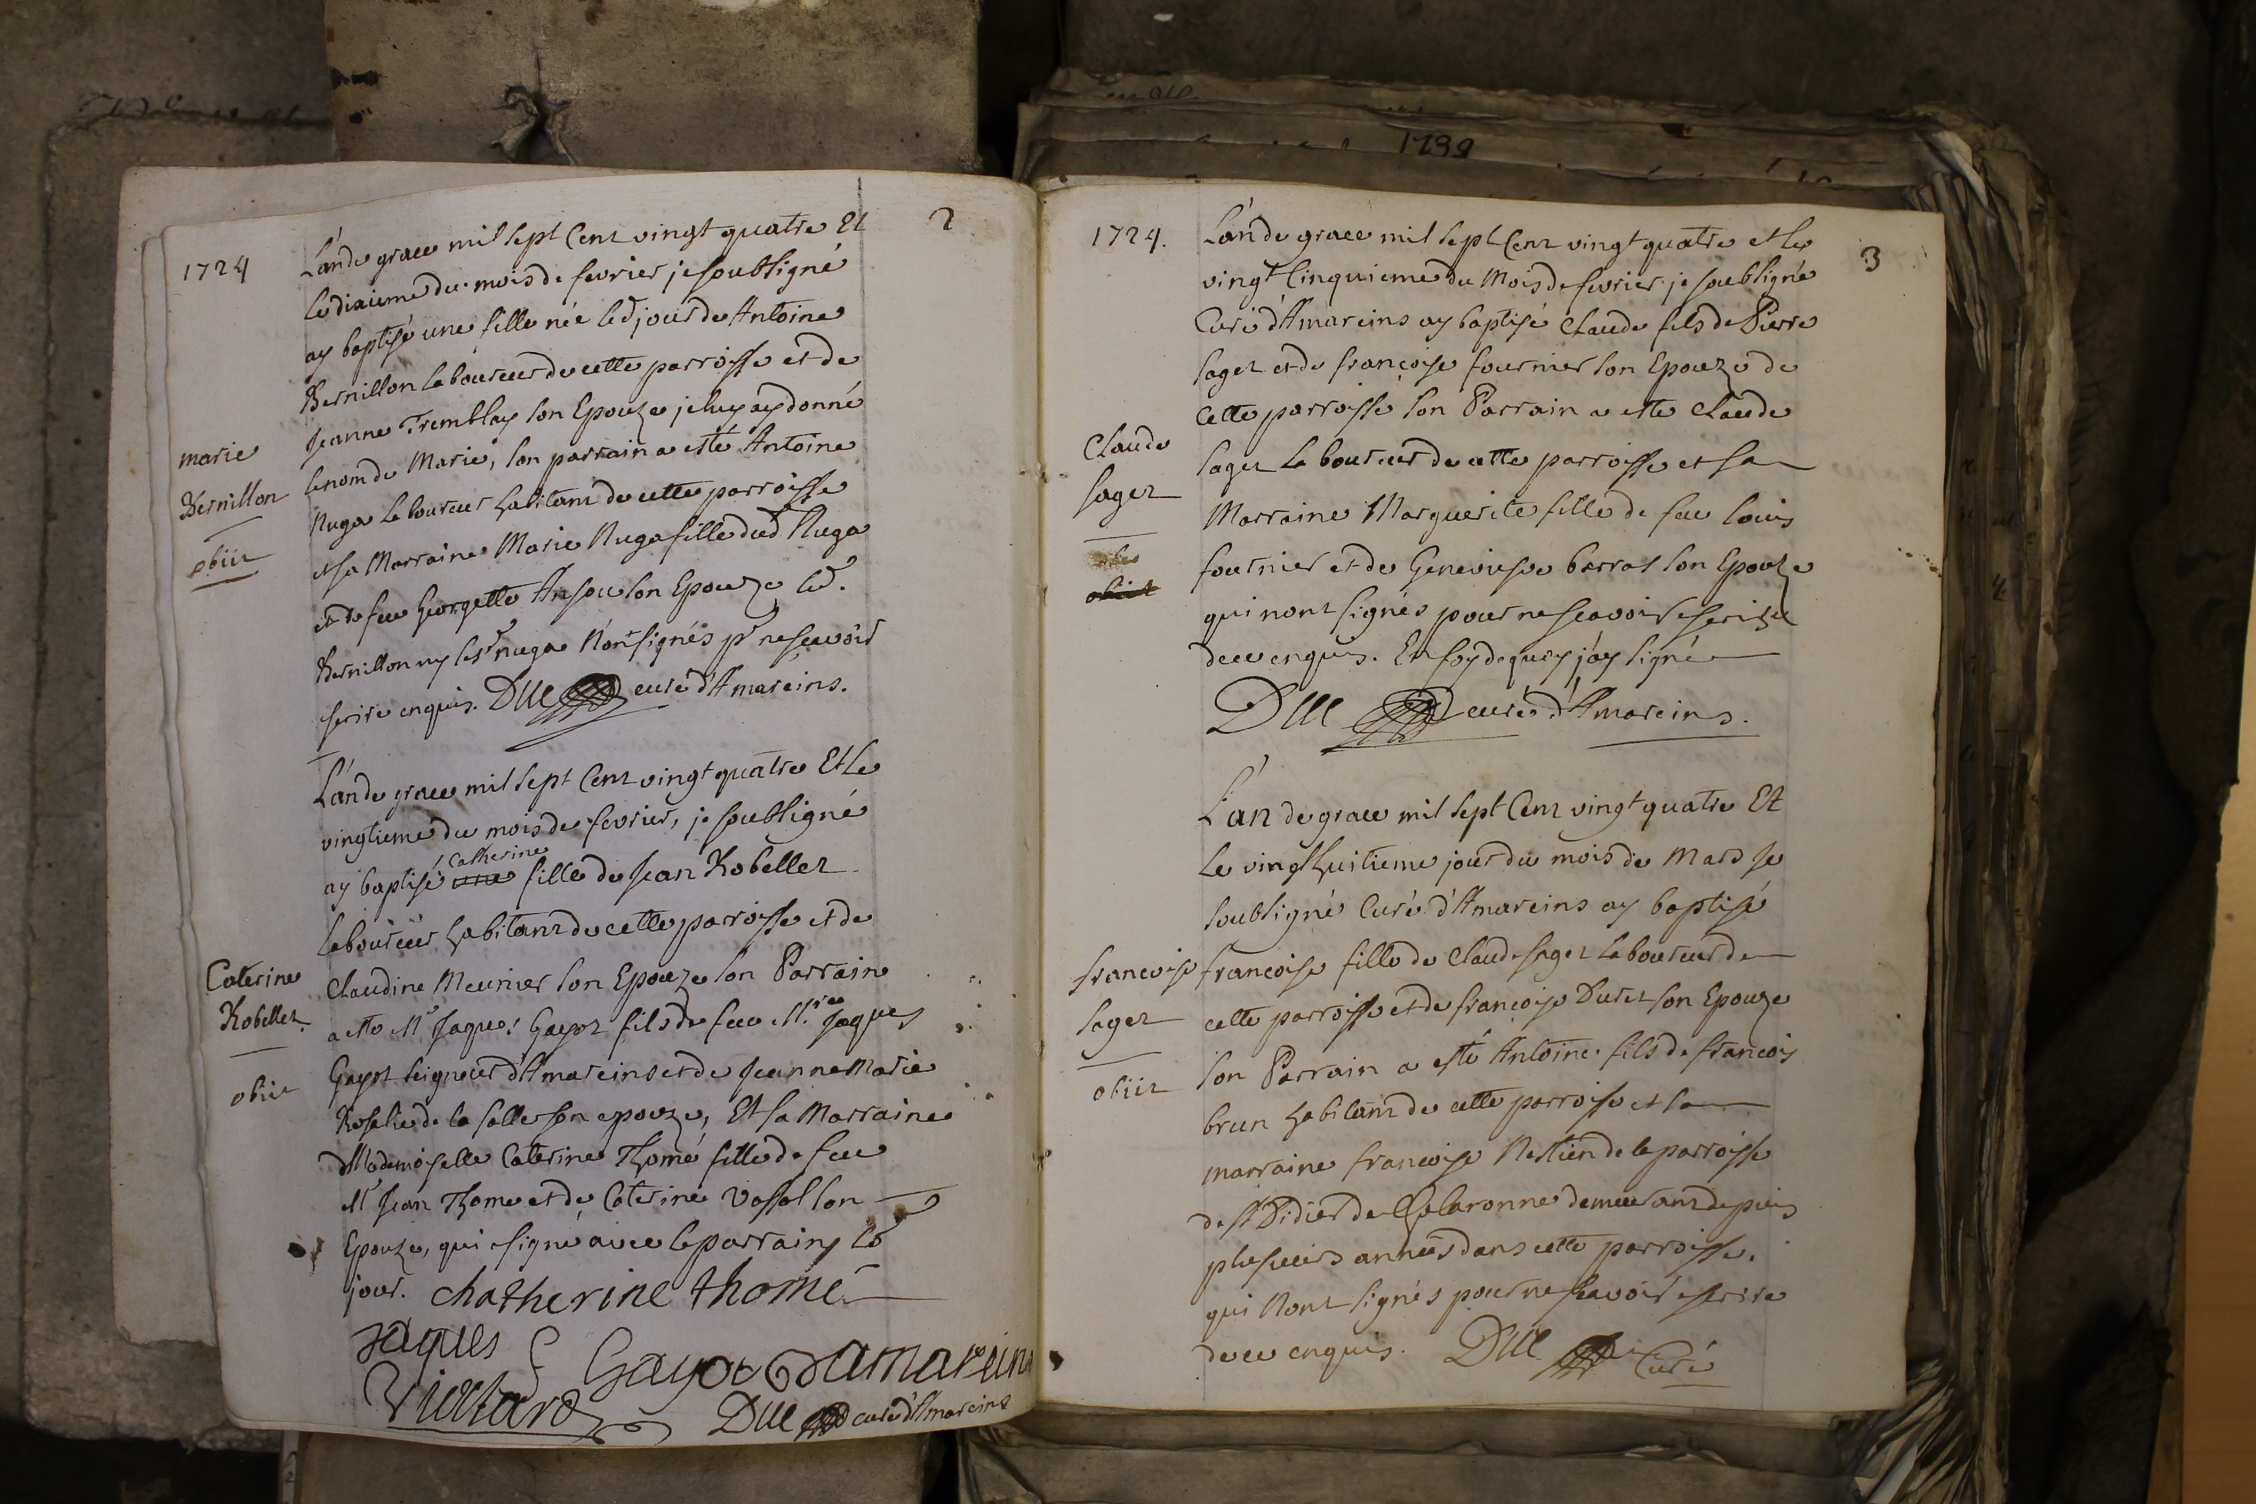 1739
2
1724
L'an de grace mil sept Cent vingt quatre Et
le dixieme du mois de fevrier je soubsigné
ay baptisé une fille née led jour de Antoine
Bernillon laboureur de cette parroisse et de
Jeanne Tremblay son Epouze je luy ay donné
le nom de Marie, son parrain a esté Antoine
Nuga laboureur habitant de cette parroisse
et sa Marraine Marie Nuga fille dud Nuga
et de feu Georgette son Epouze led.
Bernillon ny les nuga N'ont signés pr ne scavoir
escrire enquis. Due curé d'Amareins.
marie
Bernillon
obiit
L'an de grace mil sept Cent vingt quatre Et le
vingtieme du mois de fevrier, je soubsigné
ay baptisé Catherine fille de Jean Robellet
laboureur habitant de cette parroisse et de
Claudine Meunier son Epouze son Parrain
a este Mr Jaques Gayot fils de feu Mre Jaques
Gayot seigneur d'Amareins et de Jeanne Marie
Rosalie de la salle son epouze, Et sa Marraine
Mademoiselle Caterine Thomé fille de feu
Mr Jean Thome et de Caterine son
Epouze, qui signé avec le parrain led
jour. Chatherine thomé
Jaques Gayot Damareins
Due curé d'Amareins
Caterine
Robellet.
obiit
3
1724.
L'an de grace mil sept Cent vingt quatre et le
vingt Cinquieme du Mois de fevrier je soubsigné
Curé d'Amareins ay baptisé Claude fils de Pierre
sager et de françoise fournier son Epouze de
Cette parroisse son Parrain a este Claude
sager laboureur de cette parroisse et sa
Marraine Marguerite fille de feu Louis
fournier et de Genevieve barras son Epouze
qui nont signés pour ne scavoir escrire
de ce enquis. En foy de quoy j'ay signé
Due curé d'Amareins.
Claude
sager
obiit
L'an de grace mil sept Cent vingt quatre Et
Le vingt huitieme jour du mois de Mars Je
soubsigné Curé d'Amareins ay baptisé
françoise fille de Claude sager laboureur de
cette parroisse et de françoise Duret son Epouze
son Parrain a esté Antoine fils de françois
brun habitant de cette parroisse et sa
marraine françoise de la parroisse
de St Didier de Chalaronne demeurant depuis
plusieurs années dans cette parroisse.
qui Nont signés pour ne scavoir escrire
de ce enquis. Due Curé
francoise
sager
obiit